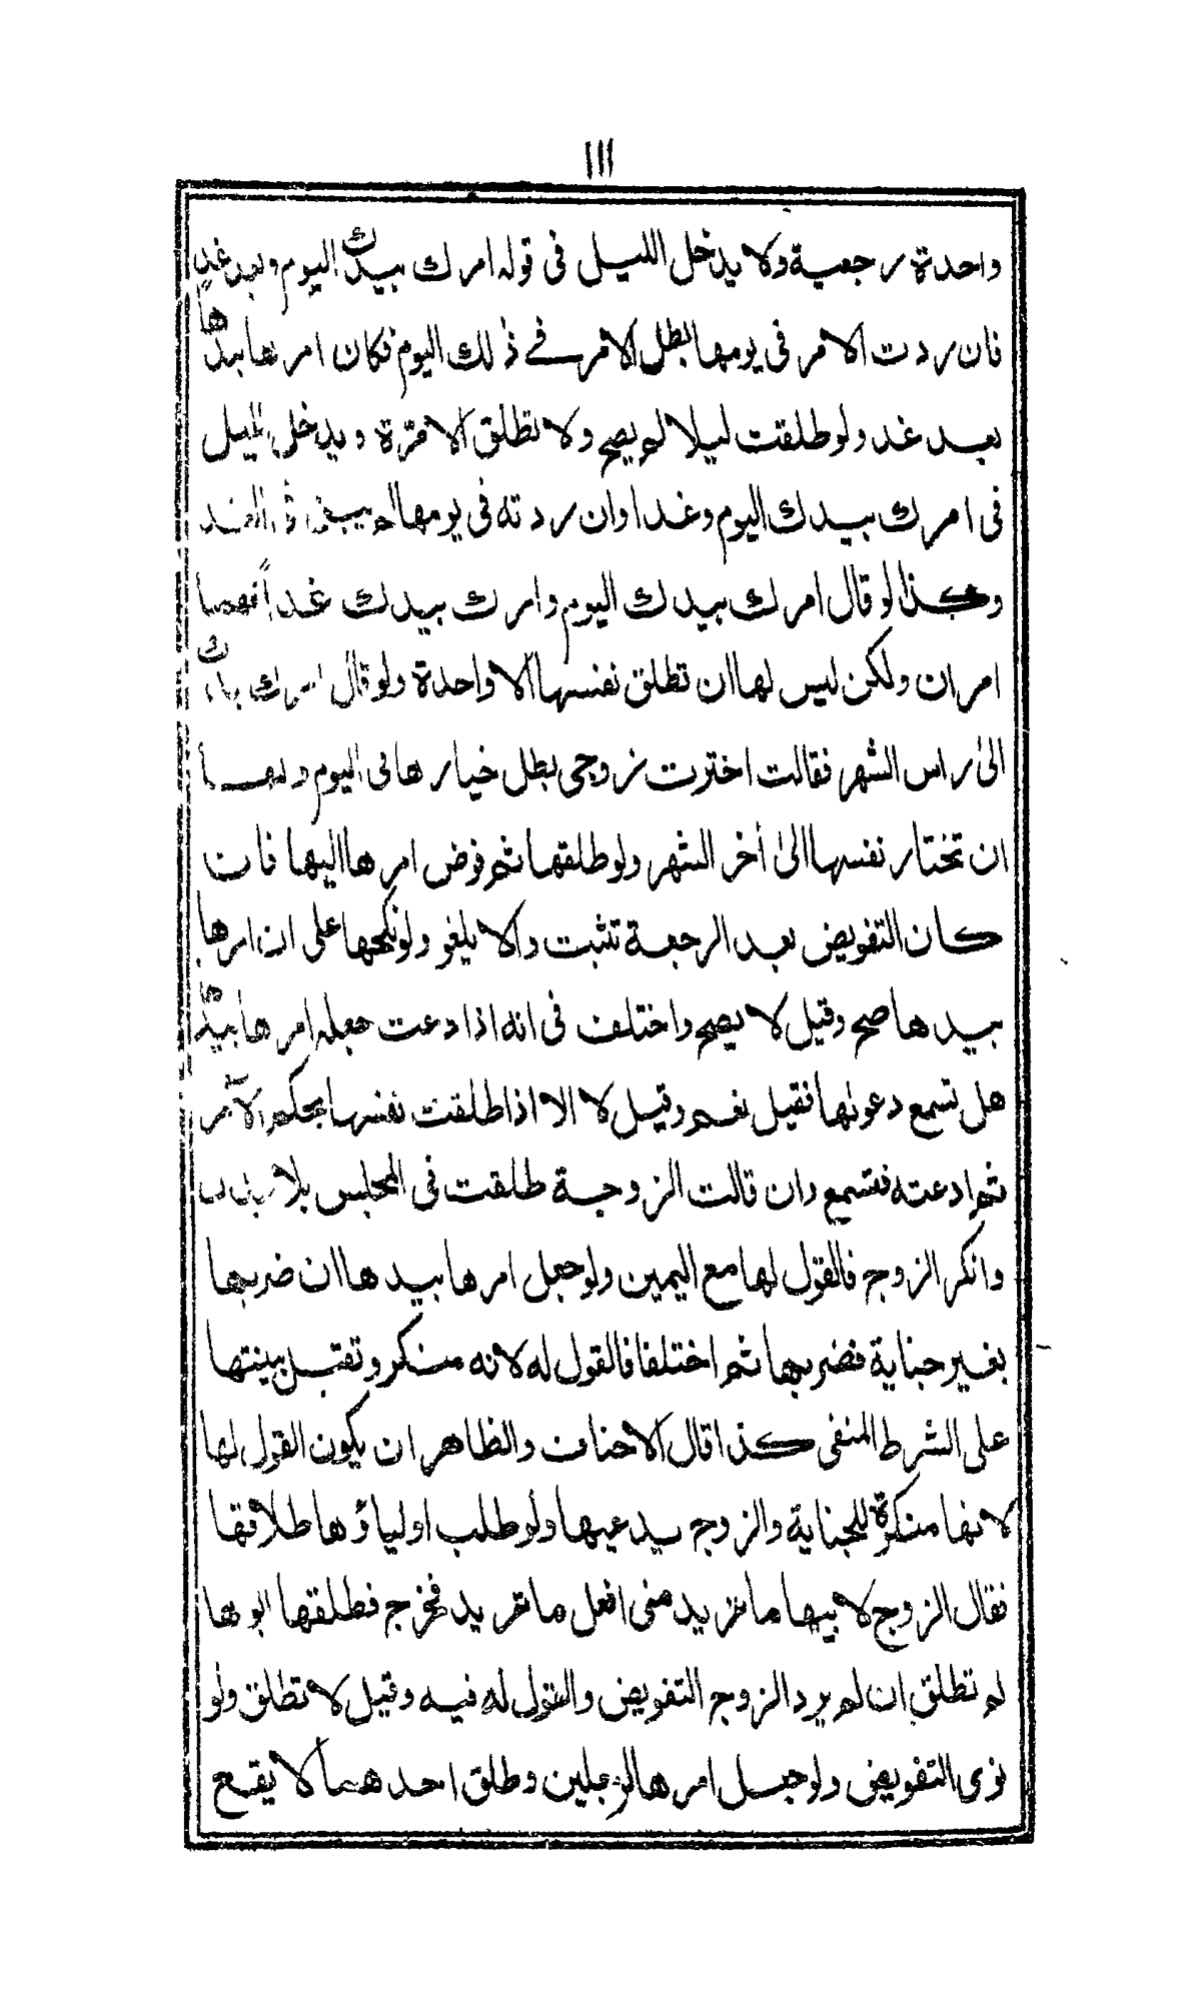 ١١١
واحدة رجعية ولا يدخل الليل فى قوله امرك بيدك اليوم وبعد غد
فان ردت الامر فى يومها بطل الامر فے ذٰلك اليوم فكان امرها بيدها
بعد غد ولو طلقت ليلا لم يصح ولا تطلق الا مرّة ويدخل الليل
فى امرك بيدك اليوم وغدا وان ردته فى يومها لم يبق فى الغد
وكذا لو قال امرك بيدك اليوم وامرك بيدك غداً فهما
امران ولكن ليس لها ان تطلق نفسها الا واحدة ولو قال امرك بيدك
الىٰ راس الشهر فقالت اخترت زوجى بطل خيارها فى اليوم ولها
ان تختار نفسها الىٰ أخر الشهر ولو طلقها ثم فوض امرها اليها فان
كان التفويض بعد الرجعة تثبت والا يلغو ولو نكحها على ان امرها
بيدها صح وقيل لا يصح واختلف فى انه اذا دعت جعله امرها بيدها
هل تسمع دعوٰىها فقيل نعم وقيل لا الا اذا طلقت نفسها بحكم الامر
ثم ادعته فتسمع وان قالت الزوجة طلقت فى المجلس بلا
وانكر الزوج فالقول لها مع اليمين ولو جعل امرها بيدها ان ضربها
بغير جناية فضربها ثم اختلفا فالقول له لانه منكر وتقبل بينتها
على الشرط المنفى كذا قال الاحناف والظاهر ان يكون القول لها
لانها منكرة للجناية والزوج يدعيها ولو طلب اولياؤها طلاقها
فقال الزوج لابيها ما تزيد منى افعل ما تريد فخرج فطلقها ابوها
لم تطلق ان لم يرد الزوج التفويض والقول له فيه وقيل لا تطلق ولو
نوى التفويض ولو جعل امرها لرجلين وطلق احدهما لا يقع